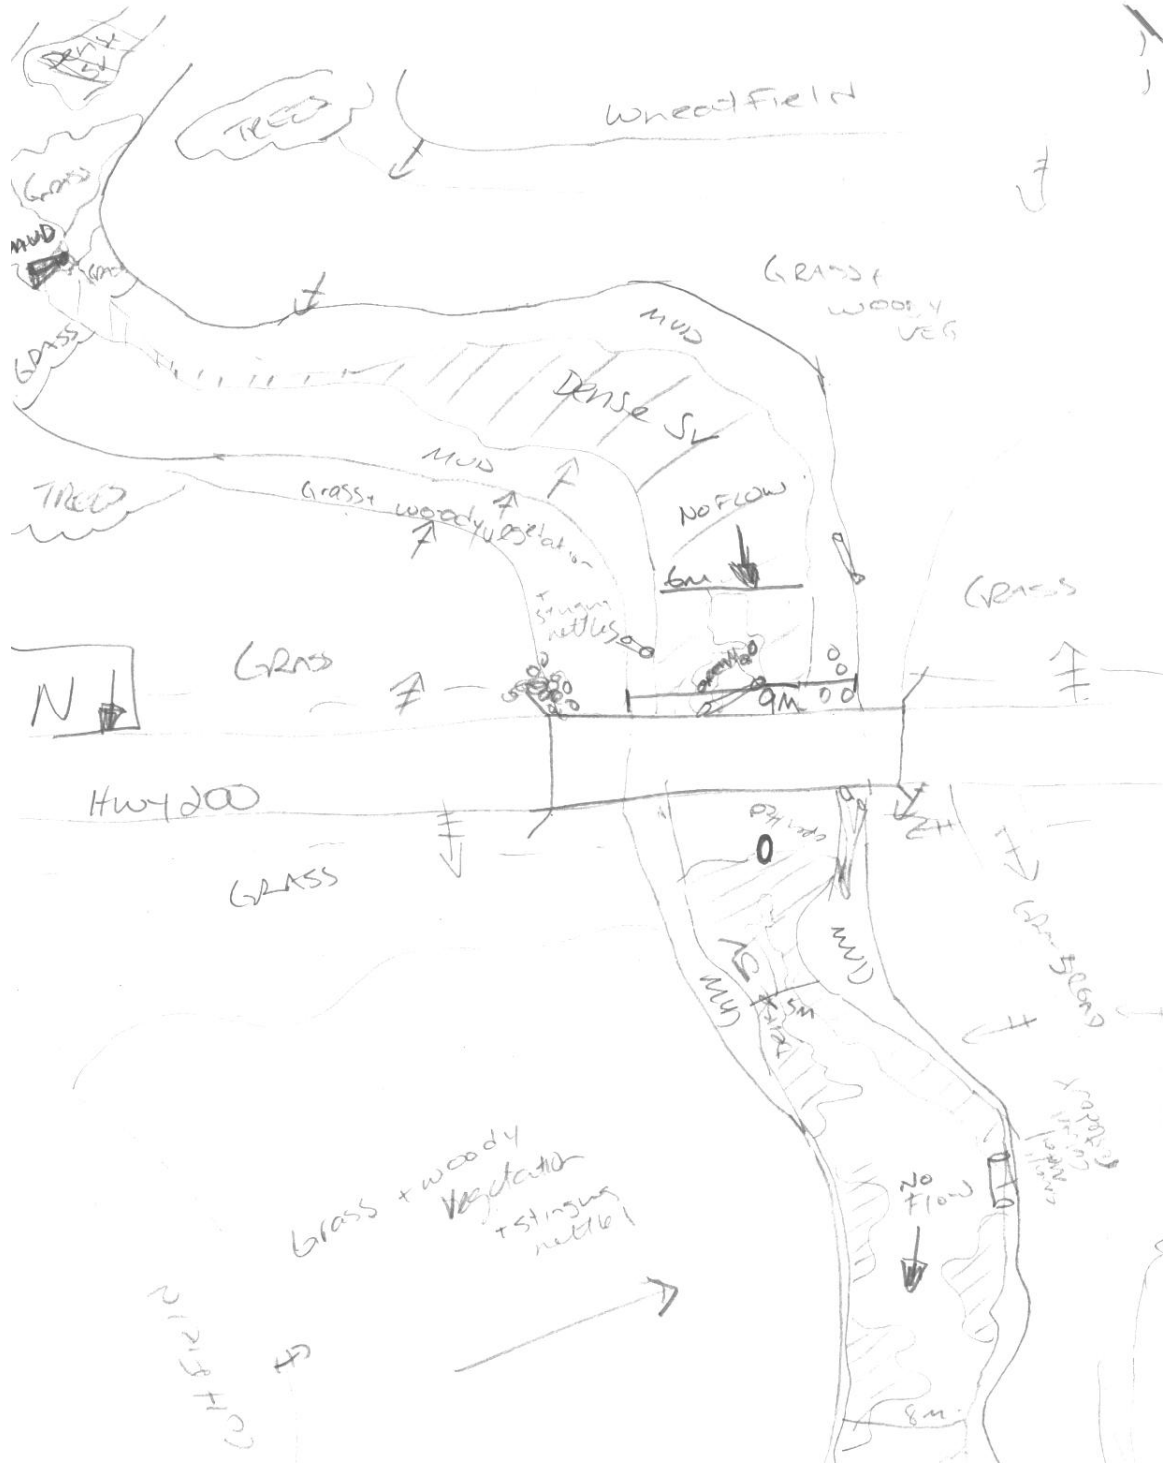 Dense
SV
TREES
Wheatfield
GRASS
MUD
GRASS
GRASS +
WOODY
VEG
MUD
GRASS
Dense SV
MUD
TREES
Grass + woody vegetation
+
stinging
nettles
NO FLOW
6M
GRASS
GRASS
N
9M
Hwy 200
GRASS
MUD
SV
MUD
5M
Grass + woody
Vegetation
+ stinging
nettles
No
Flow
8M